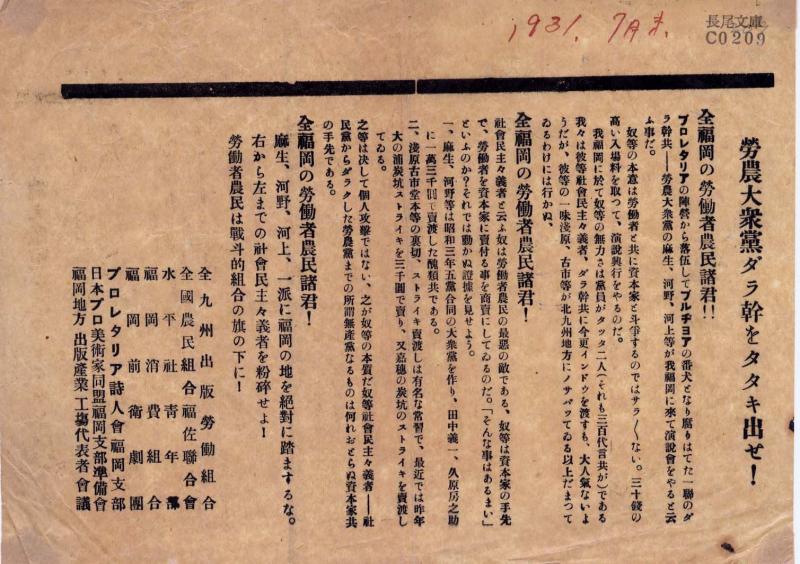 1931. 7月末.
長尾文庫
C0209
勞農大衆黨ダラ幹をタタキ出せ!
全福岡の勞働者農民諸君!!
プロレタリアの陣營から落伍してブルヂョアの番犬となり腐りはてた一聯のダ
ラ幹共——勞農大衆黨の麻生、河野、河上等が我福岡に來て演說會をやると云
ふ事だ。
奴等の本意は勞働者と共に資本家と斗爭するのではサラ〳〵ない。三十錢の
高い入場料を取つて、演說興行をやるのだ。
我福岡に於て奴等の無力さは黨員がタッタ二人(それも三百代言共が)である
我々は彼等社會民主々義者、ダラ幹共に今更インドウを渡すも、大人氣ないよ
うだが、彼等の一味淺原、古市等が北九州地方にノサバッてゐる以上だまつて
ゐるわけには行かぬ、
全福岡の勞働者農民諸君!
社會民主々義者と云ふ奴は勞働者農民の最惡の敵である、奴等は資本家の手先
で、勞働者を資本家に賣付る事を商賣にしてゐるのだ。「そんな事はあるまい」
といふのか?それでは動かぬ證據を見せよう。
一、麻生、河野等は昭和三年五黨合同の大衆黨を作り、田中義一、久原房之助
に一萬三千圓で賣渡した醜類共である。
二、淺原古市堂本等の裏切、ストライキ賣渡しは有名な常習で、最近では昨年
大の浦炭坑ストライキを三千圓で賣り、又嘉穗の炭坑のストライキを賣渡し
てゐる。
之等は決して個人攻擊ではない、之が奴等の本質だ奴等社會民主々義者——社
民黨からダラクした勞農黨までの所謂無產黨なるものは何れおとらぬ資本家共
の手先である。
全福岡の勞働者農民諸君!
麻生、河野、河上、一派に福岡の地を絕對に踏ますな。
右から左までの社會民主々義者を粉碎せよ!
勞働者農民は戰斗的組合の旗の下に!
全九州出版勞働組合
全國農民組合福佐聯合會
水平社靑年部
福岡消費組合
福岡前衞劇團
プロレタリア詩人會福岡支部
日本プロ美術家同盟福岡支部準備會
福岡地方出版產業工塲代表者會議